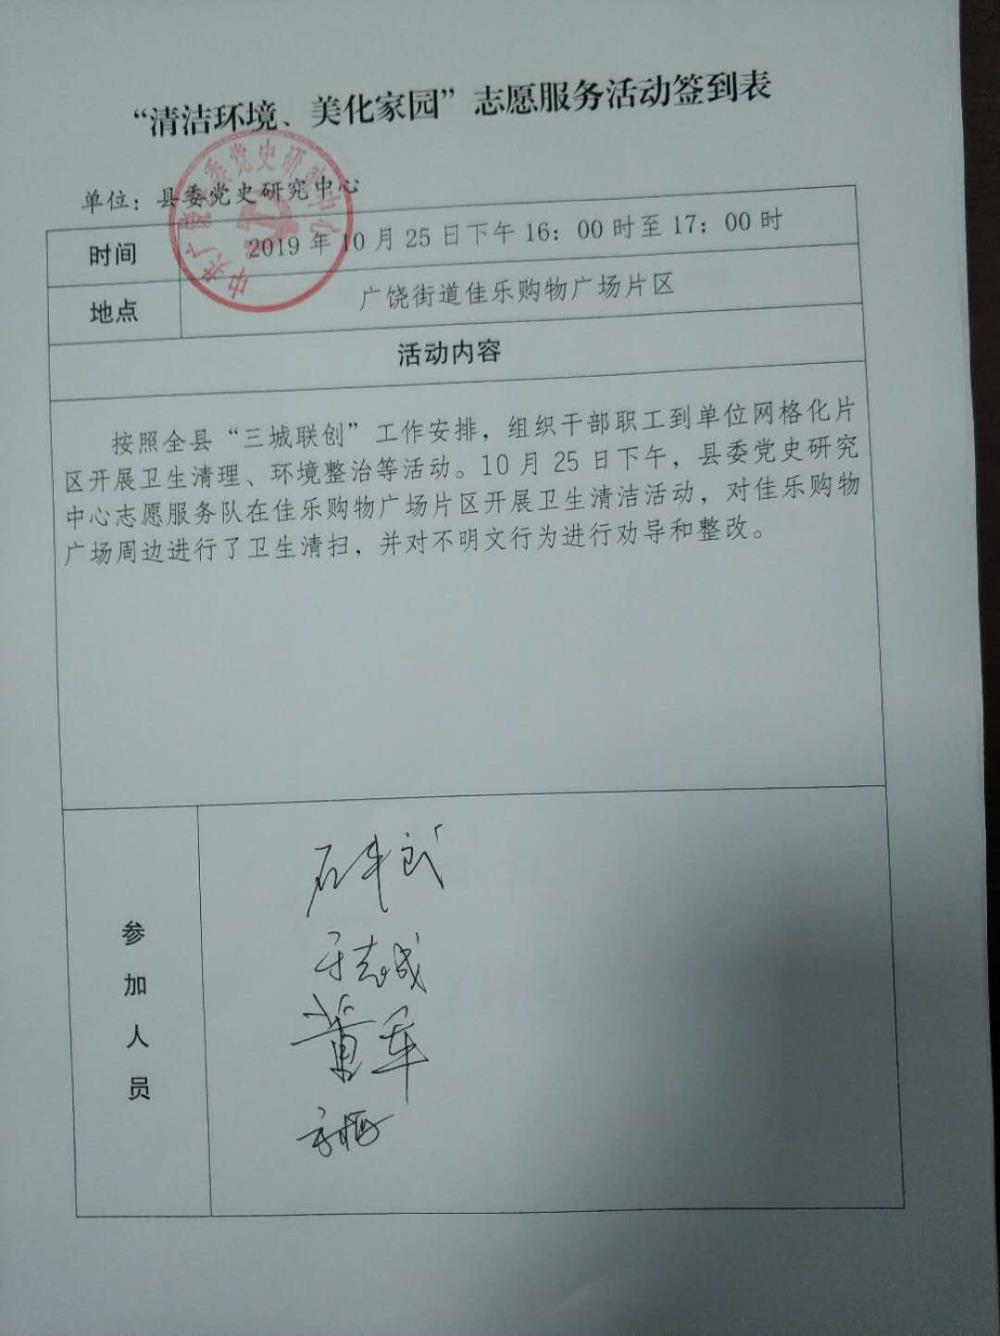 “清洁环境、美化家园”志愿服务活动签到表
单位：县委党史研究中心
中共广饶县委党史研究中心
时间 2019年10月25日下午16：00时至17：00时
地点 广饶街道佳乐购物广场片区
活动内容
按照全县“三城联创”工作安排，组织干部职工到单位网格化片
区开展卫生清理、环境整治等活动。10月25日下午，县委党史研究
中心志愿服务队在佳乐购物广场片区开展卫生清洁活动，对佳乐购物
广场周边进行了卫生清扫，并对不明文行为进行劝导和整改。
参加人员
于志成
董军